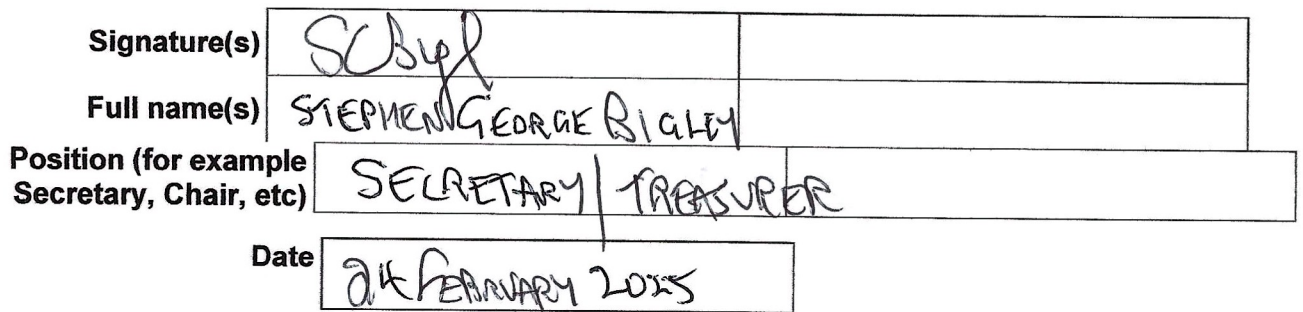 Signature(s)
Full name(s) STEPHEN GEORGE BIGLEY
Position (for example
Secretary, Chair, etc) SECRETARY / TREASURER
Date 24 FEBRUARY 2025